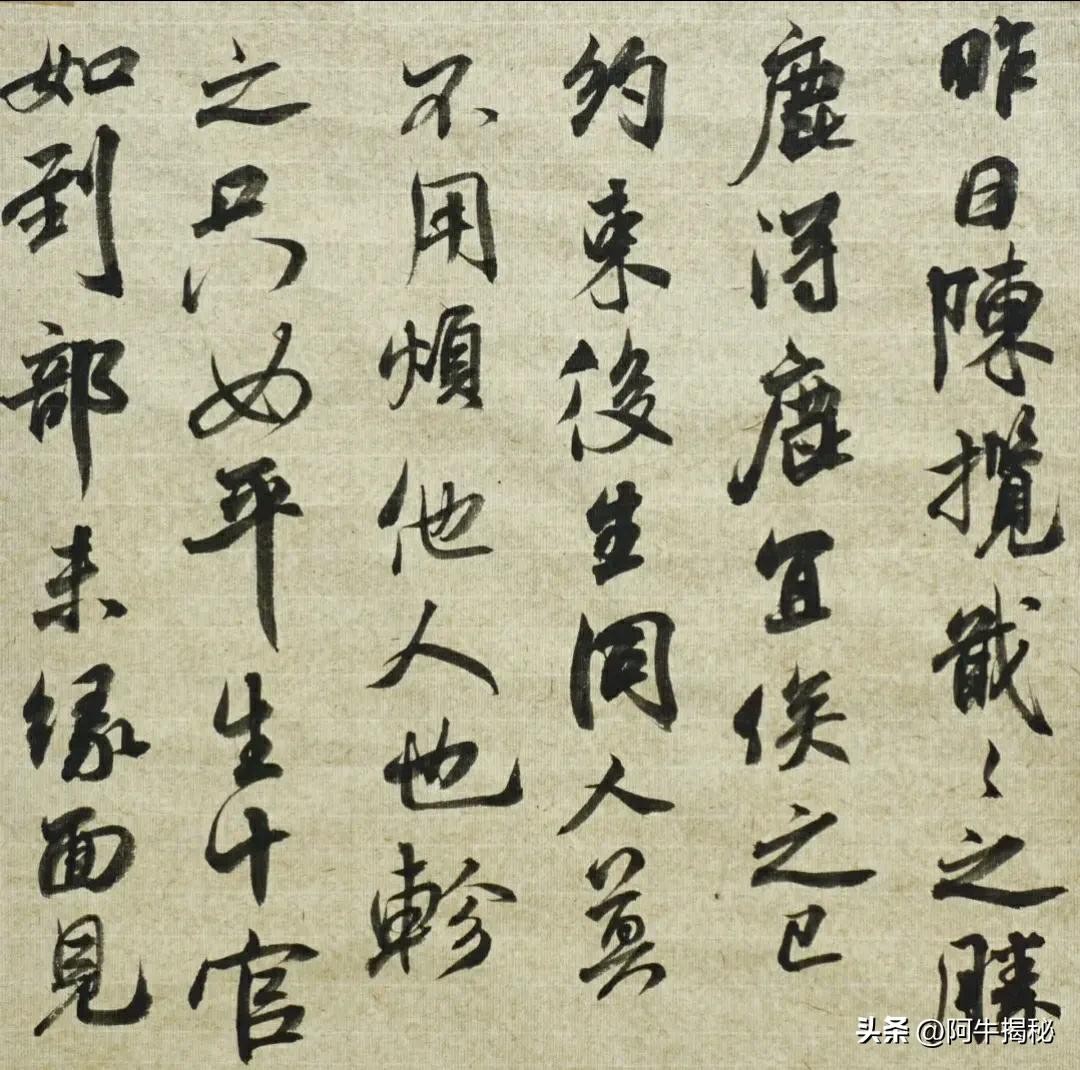 昨日陳攬戢々之勝
鹿得鹿宜俟之已
約束後生同人莫
不用煩他人也軫
之只平生十官
如到部未緣面見
头条 @阿牛揭秘